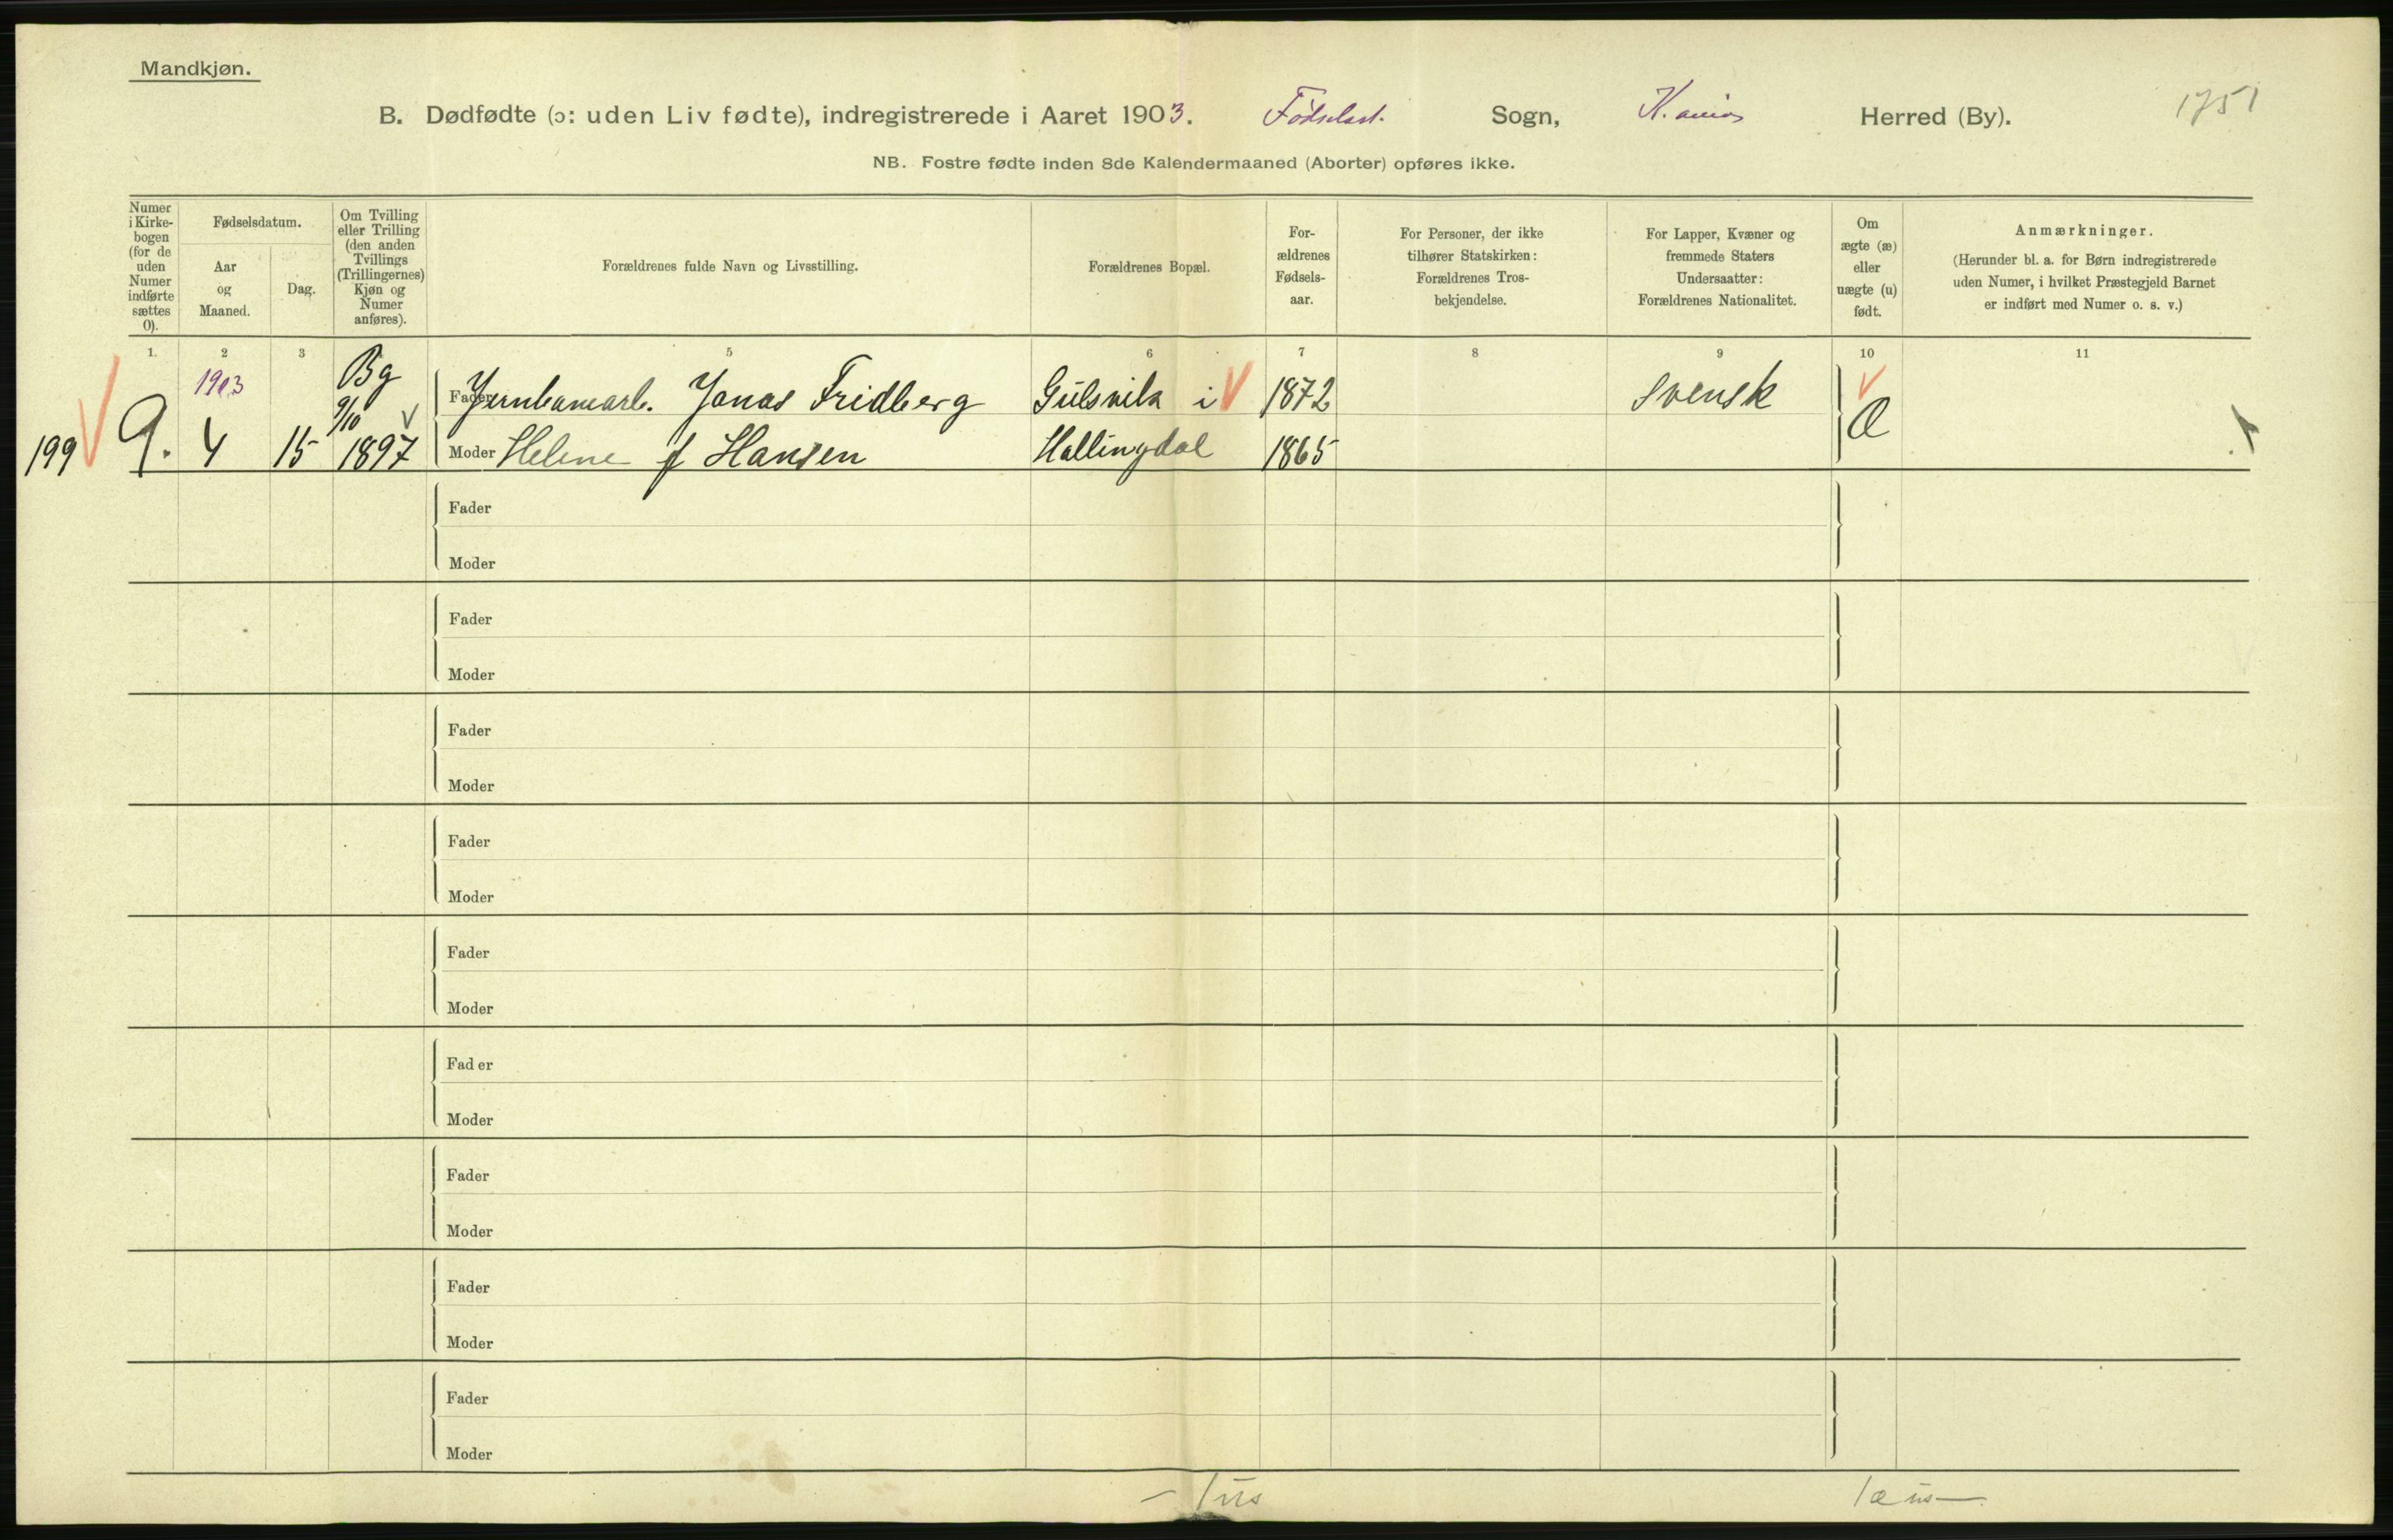 Mandkjøn.
B. Dødfødte (ɔ: uden Liv fødte), indregistrerede i Aaret 1903. Fødselsst. Sogn, K.ania Herred (By). 1751
NB. Fostre fødte inden 8de Kalendermaaned (Aborter) opføres ikke.
Numer
i Kirke-
bogen
(for de
uden
Numer
indførte
sættes
0).
Fødselsdatum.
Aar
og
Maaned.
Dag.
Om Tvilling
eller Trilling
(den anden
Tvillings
(Trillingernes)
Kjøn og
Numer
anføres).
Forældrenes fulde Navn og Livsstilling.
Forældrenes Bopæl.
For-
ældrenes
Fødsels-
aar.
For Personer, der ikke
tilhører Statskirken:
Forældrenes Tros-
bekjendelse.
For Lapper, Kvæner og
fremmede Staters
Undersaatter:
Forældrenes Nationalitet.
Om
ægte (æ)
eller
uægte (u)
født.
Anmærkninger.
(Herunder bl. a. for Børn indregistrerede
uden Numer, i hvilket Præstegjeld Barnet
er indført med Numer o. s. v.)
1. 2 3 5 6 7 8 9 10 11
1903 Bg
9/10 Fader Jernbanearb. Jonas Fridberg Gulsvik i 1872 Svensk Æ
199 9. 4 15 1897 Moder Helene f Hansen Hallingdal 1865
Fader
Moder
Fader
Moder
Fader
Moder
Fader
Moder
Fader
Moder
Fader
Moder
Fader
Moder
Fader
Moder
Fader
Moder